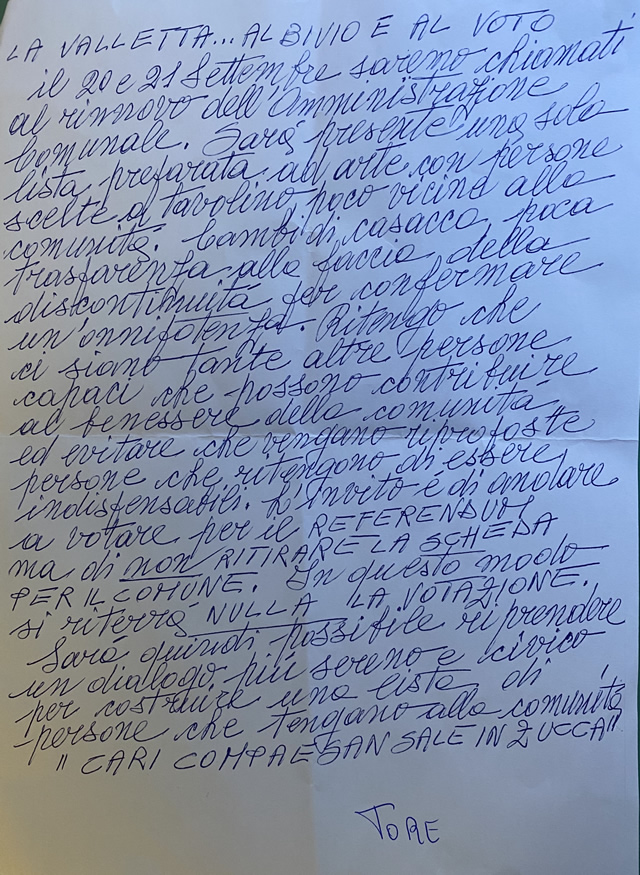 LA VALLETTA... AL BIVIO E AL VOTO
il 20 e 21 Settembre saremo chiamati
al rinnovo dell'Amministrazione
Comunale. Sará presente una sola
lista preparata ad arte con persone
scelte a tavolino, poco vicine alla
comunitá. Cambi di casacca, poca
trasparenza alla faccia della
discontinuitá per confermare
un'onnipotenza. Ritengo che
ci siano tante altre persone
capaci che possono contribuire
al benessere della comunitá
ed evitare che vengano riproposte
persone che ritengono di essere
indispensabili. L'Invito é di andare
a votare per il REFERENDUM
ma di non RITIRARE LA SCHEDA
PER IL COMUNE. In questo modo
si riterrá NULLA LA VOTAZIONE.
Sará quindi possibile riprendere
un dialogo piú sereno e civico
per costruire una lista di
persone che tengano alla comunitá
"CARI COMPAESAN SALE IN ZUCCA"
TORE